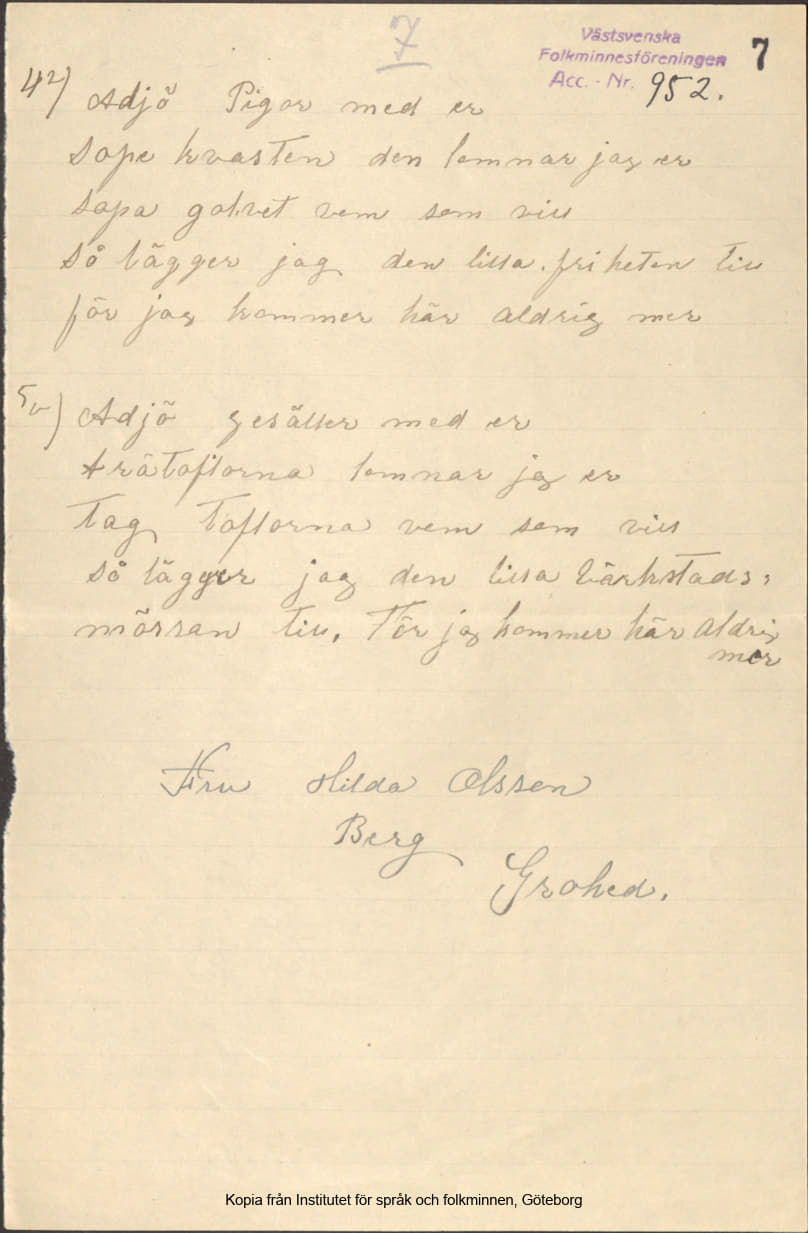 7
Västsvenska
Folkminnesföreningen
Acc. - Nr. 952.
7
4 v) Adjö Pigor med er
Sope kvasten den lemnar jag er
sopa golvet vem som vill
Så lägger jag den lilla friheten till
för jag kommer här aldrig mer
5 v) Adjö gesäller med er
trätoflorna lemnar jag er
Tag toflorna vem som vill
så lägger jag den lilla värkstads=
mössan till. För jag kommer här aldrig
mer
Fru Hilda Olssen
Berg
Grohed.
Kopia från Institutet för språk och folkminnen, Göteborg